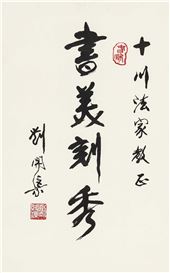 十川法家教正
書美刻秀
劉開渠